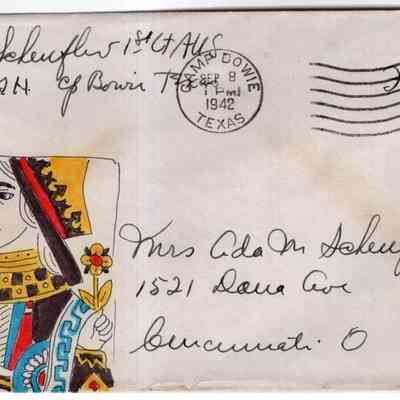 1st Lt AUS
Cp Bowie Texas
CAMP BOWIE
SEP 8
PM
1942
TEXAS
Mrs Ada M Scheuf
1521 Dana Ave
Cincinnati O